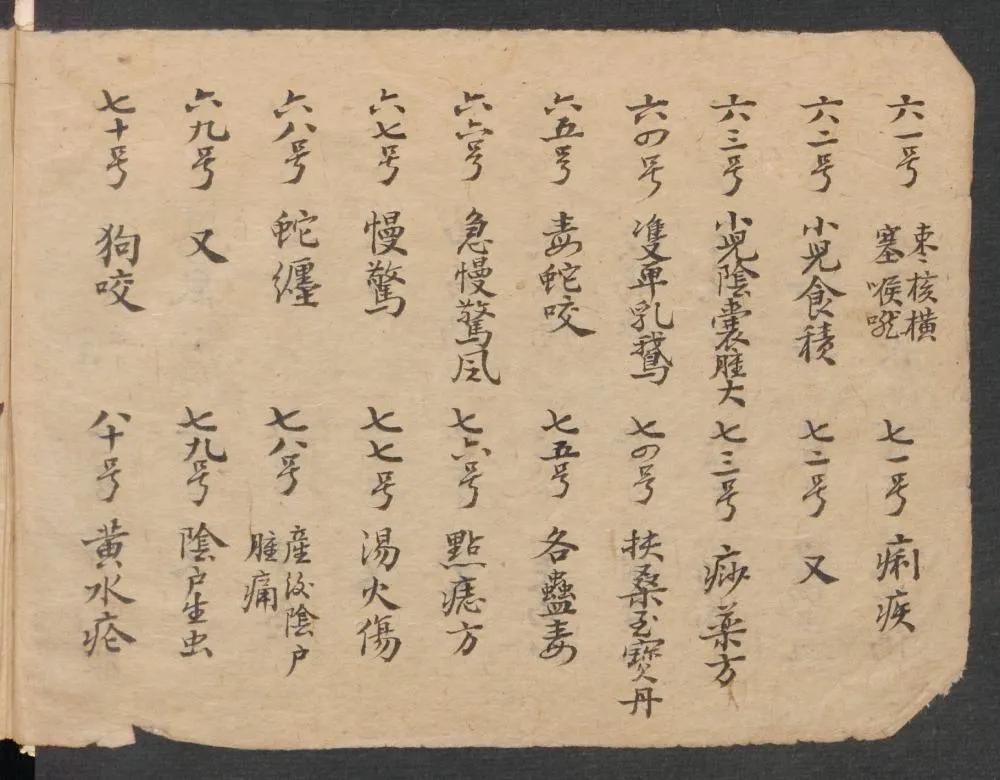 六一号 枣核横塞喉咙
六二号 小児食積
六三号 小児陰囊腫大
六四号 隻単乳鵝
六五号 毒蛇咬
六六号 急慢驚风
六七号 慢驚
六八号 蛇纏
六九号 又
七十号 狗咬
七一号 痢疾
七二号 又
七三号 痧薬方
七四号 扶桑至寶丹
七五号 各蠱毒
七六号 點痣方
七七号 湯火傷
七八号 産後陰户腫痛
七九号 陰户生虫
八十号 黄水疮